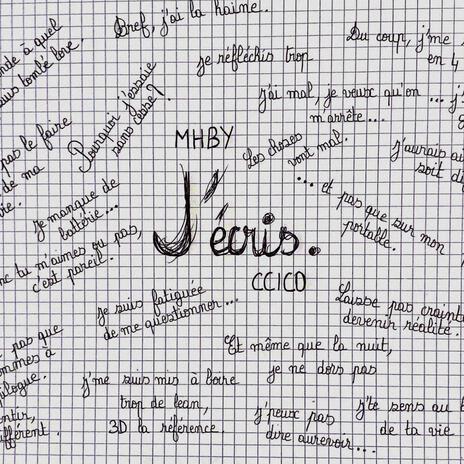 Bref, j'ai la haine.
nde à quel
suis tombé love.
je réfléchis trop
Du coup, j'me
en 4
Pourquoi j'essaie
sans cesse?
j'ai mal, je veux qu'on ... j'
m'arrête...
pas le faire
de ma
vie.
MHBY
Les choses
vont mal.
j'aurais
soit
je manque de
battérie...
J'écris.
... et pas que sur mon
portable.
tu m'aimes ou pas,
c'est pareil.
CCICO
je suis fatiguée
de me questionner...
Laisse pas
devenir réalité.
pas que
sommes à
Et même que la nuit,
je ne dors pas
j'me suis mis à boire
trop de lean,
3D la référence.
j'peux pas
dire aurevoir...
j'te sens au
de ta vie